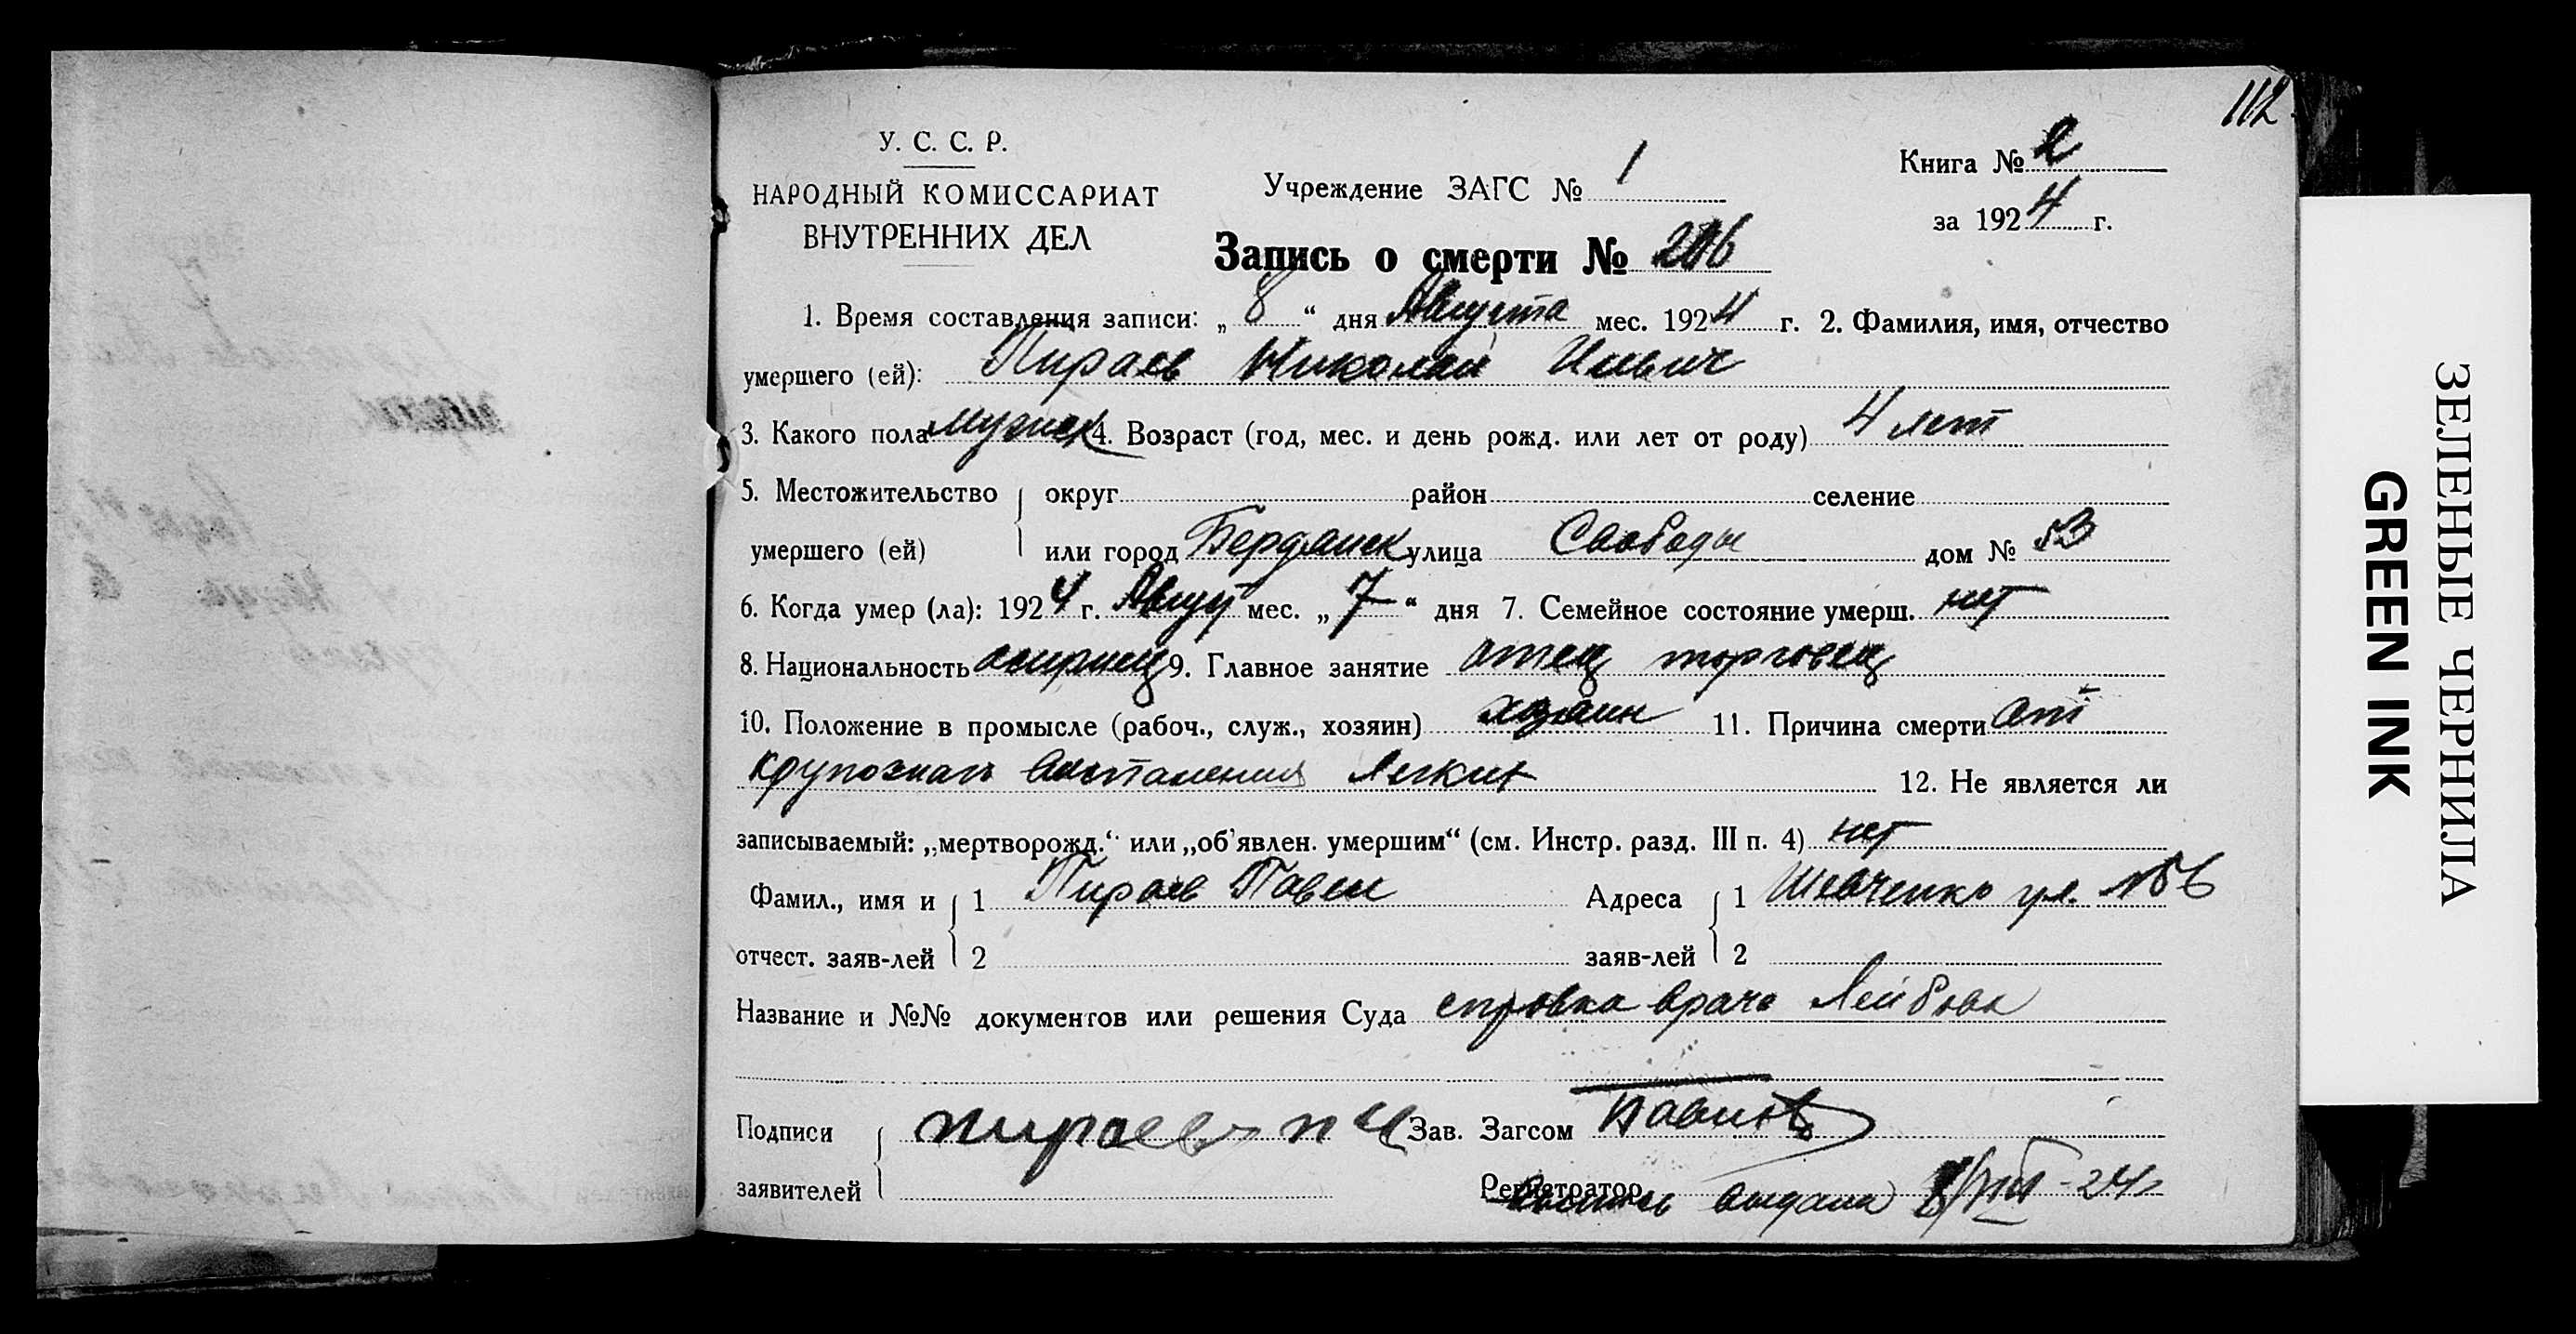 112
У. С. С. Р.
НАРОДНЫЙ КОМИССАРИАТ
ВНУТРЕННИХ ДЕЛ
Учреждение ЗАГС № 1
Книга № 2
за 1924 г.
Запись о смерти № 206
1. Время составления записи: „ 8 “ дня Августа мес. 1924 г. 2. Фамилия, имя, отчество
умершего (ей): Пираев Николай Ильич
3. Какого пола мужск 4. Возраст (год, мес. и день рожд. или лет от роду) 4 лет
5. Местожительство округ район селение
умершего (ей) или город Бердянск улица Свободы дом № 53
6. Когда умер (ла): 1924 г. Август мес. „ 7 “ дня 7. Семейное состояние умерш. нет
8. Национальность ассириец 9. Главное занятие отец торговец
10. Положение в промысле (рабоч., служ., хозяин) хозяин 11. Причина смерти От
крупознаго воспаления легких 12. Не является ли
записываемый: „мертворожд.“ или „об'явлен. умершим“ (см. Инстр. разд. III п. 4) нет
Фамил., имя и 1 Пираев Павел Адреса 1 Шевченко ул.
отчест. заяв-лей 2 заяв-лей 2
Название и №№ документов или решения Суда справка врача Лейбова
Подписи Пираев п и Зав. Загсом
заявителей Регистратор
выдана 8/VIII-24г
ЗЕЛЕНЫЕ ЧЕРНИЛА
GREEN INK